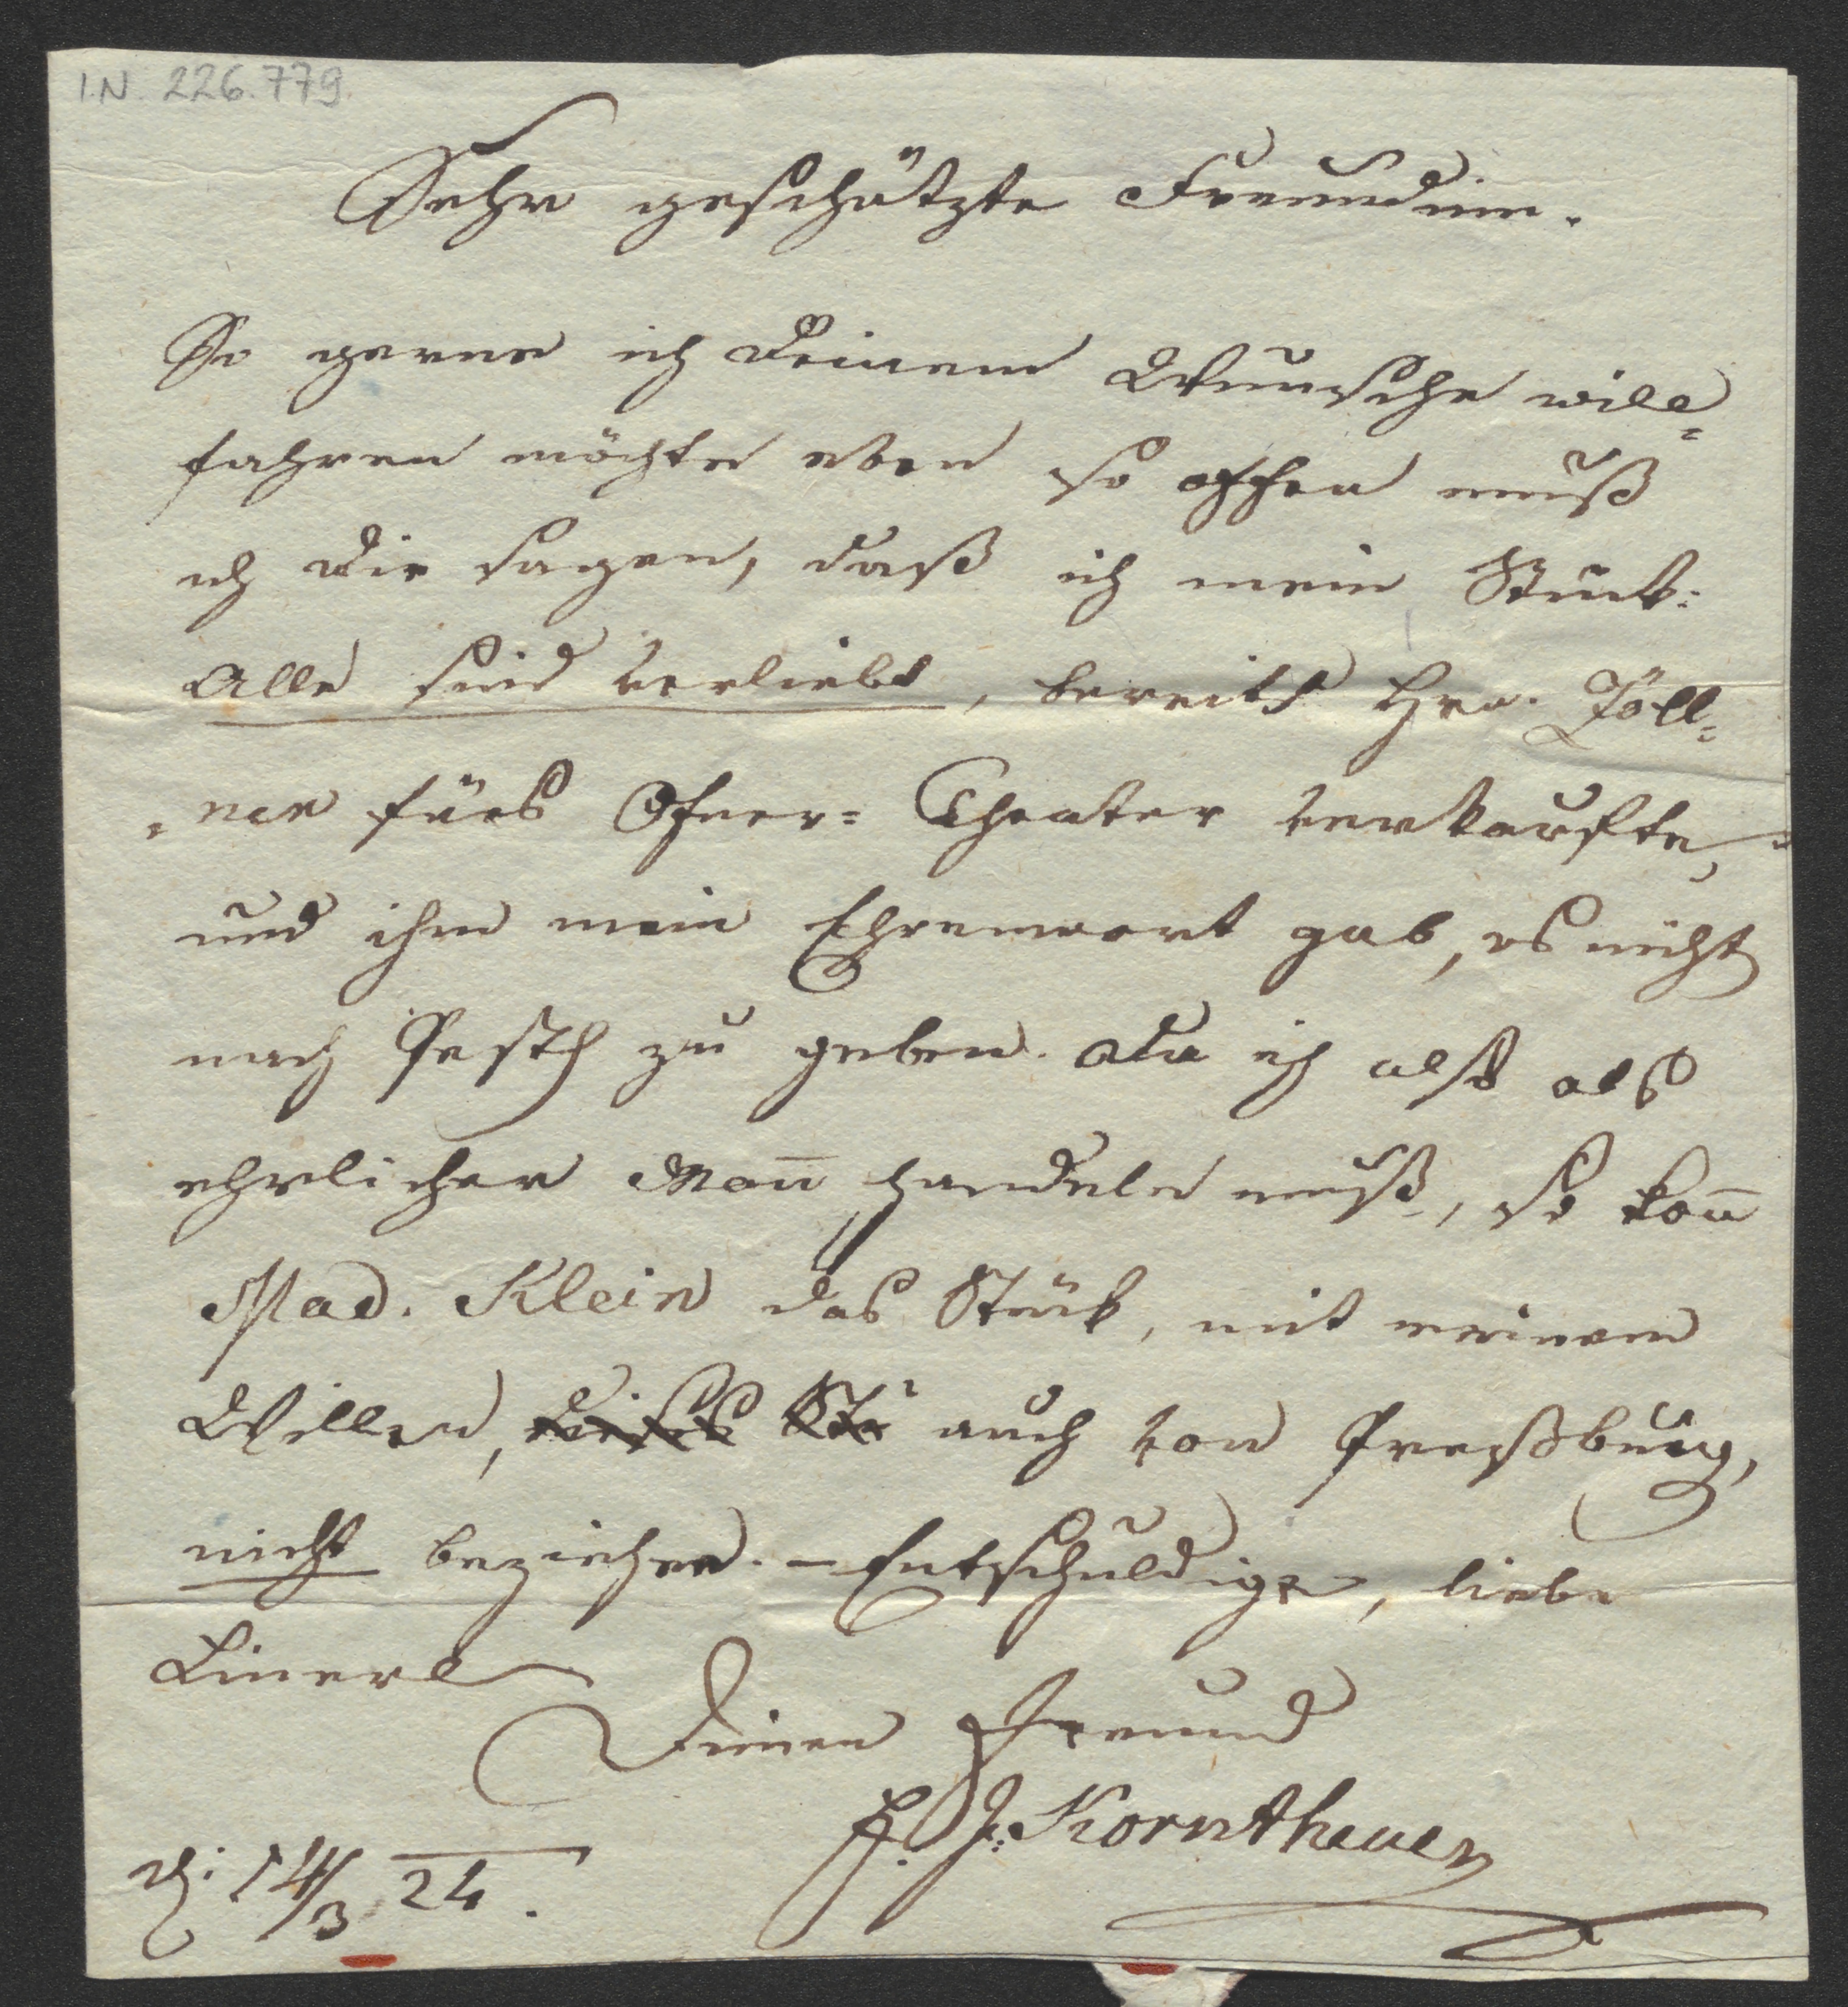 I.N. 226.779.
Sehr geschätzte Freundinn.
So gerne ich Deinem Wunsche will=
fahren möchte eben so offen muß
ich Dir sagen, daß ich mein Stück:
Alle sind verliebt, bereits Hrn. Zöll=
=ner fürs Ofner= Theater verkaufte,
und ihm mein Ehrenwort gab, es nicht
nach Pesth zu geben. Da ich also als
ehrlicher Mañ handeln muß, so kañ
Mad. Klein das Stück, mit meinem
Willen, dieses Stü auch von Preßburg,
nicht beziehen. – Entschuldige, liebe
Linerl
Deinen Freund
F. J. Korntheuer
d: 14/3 24.